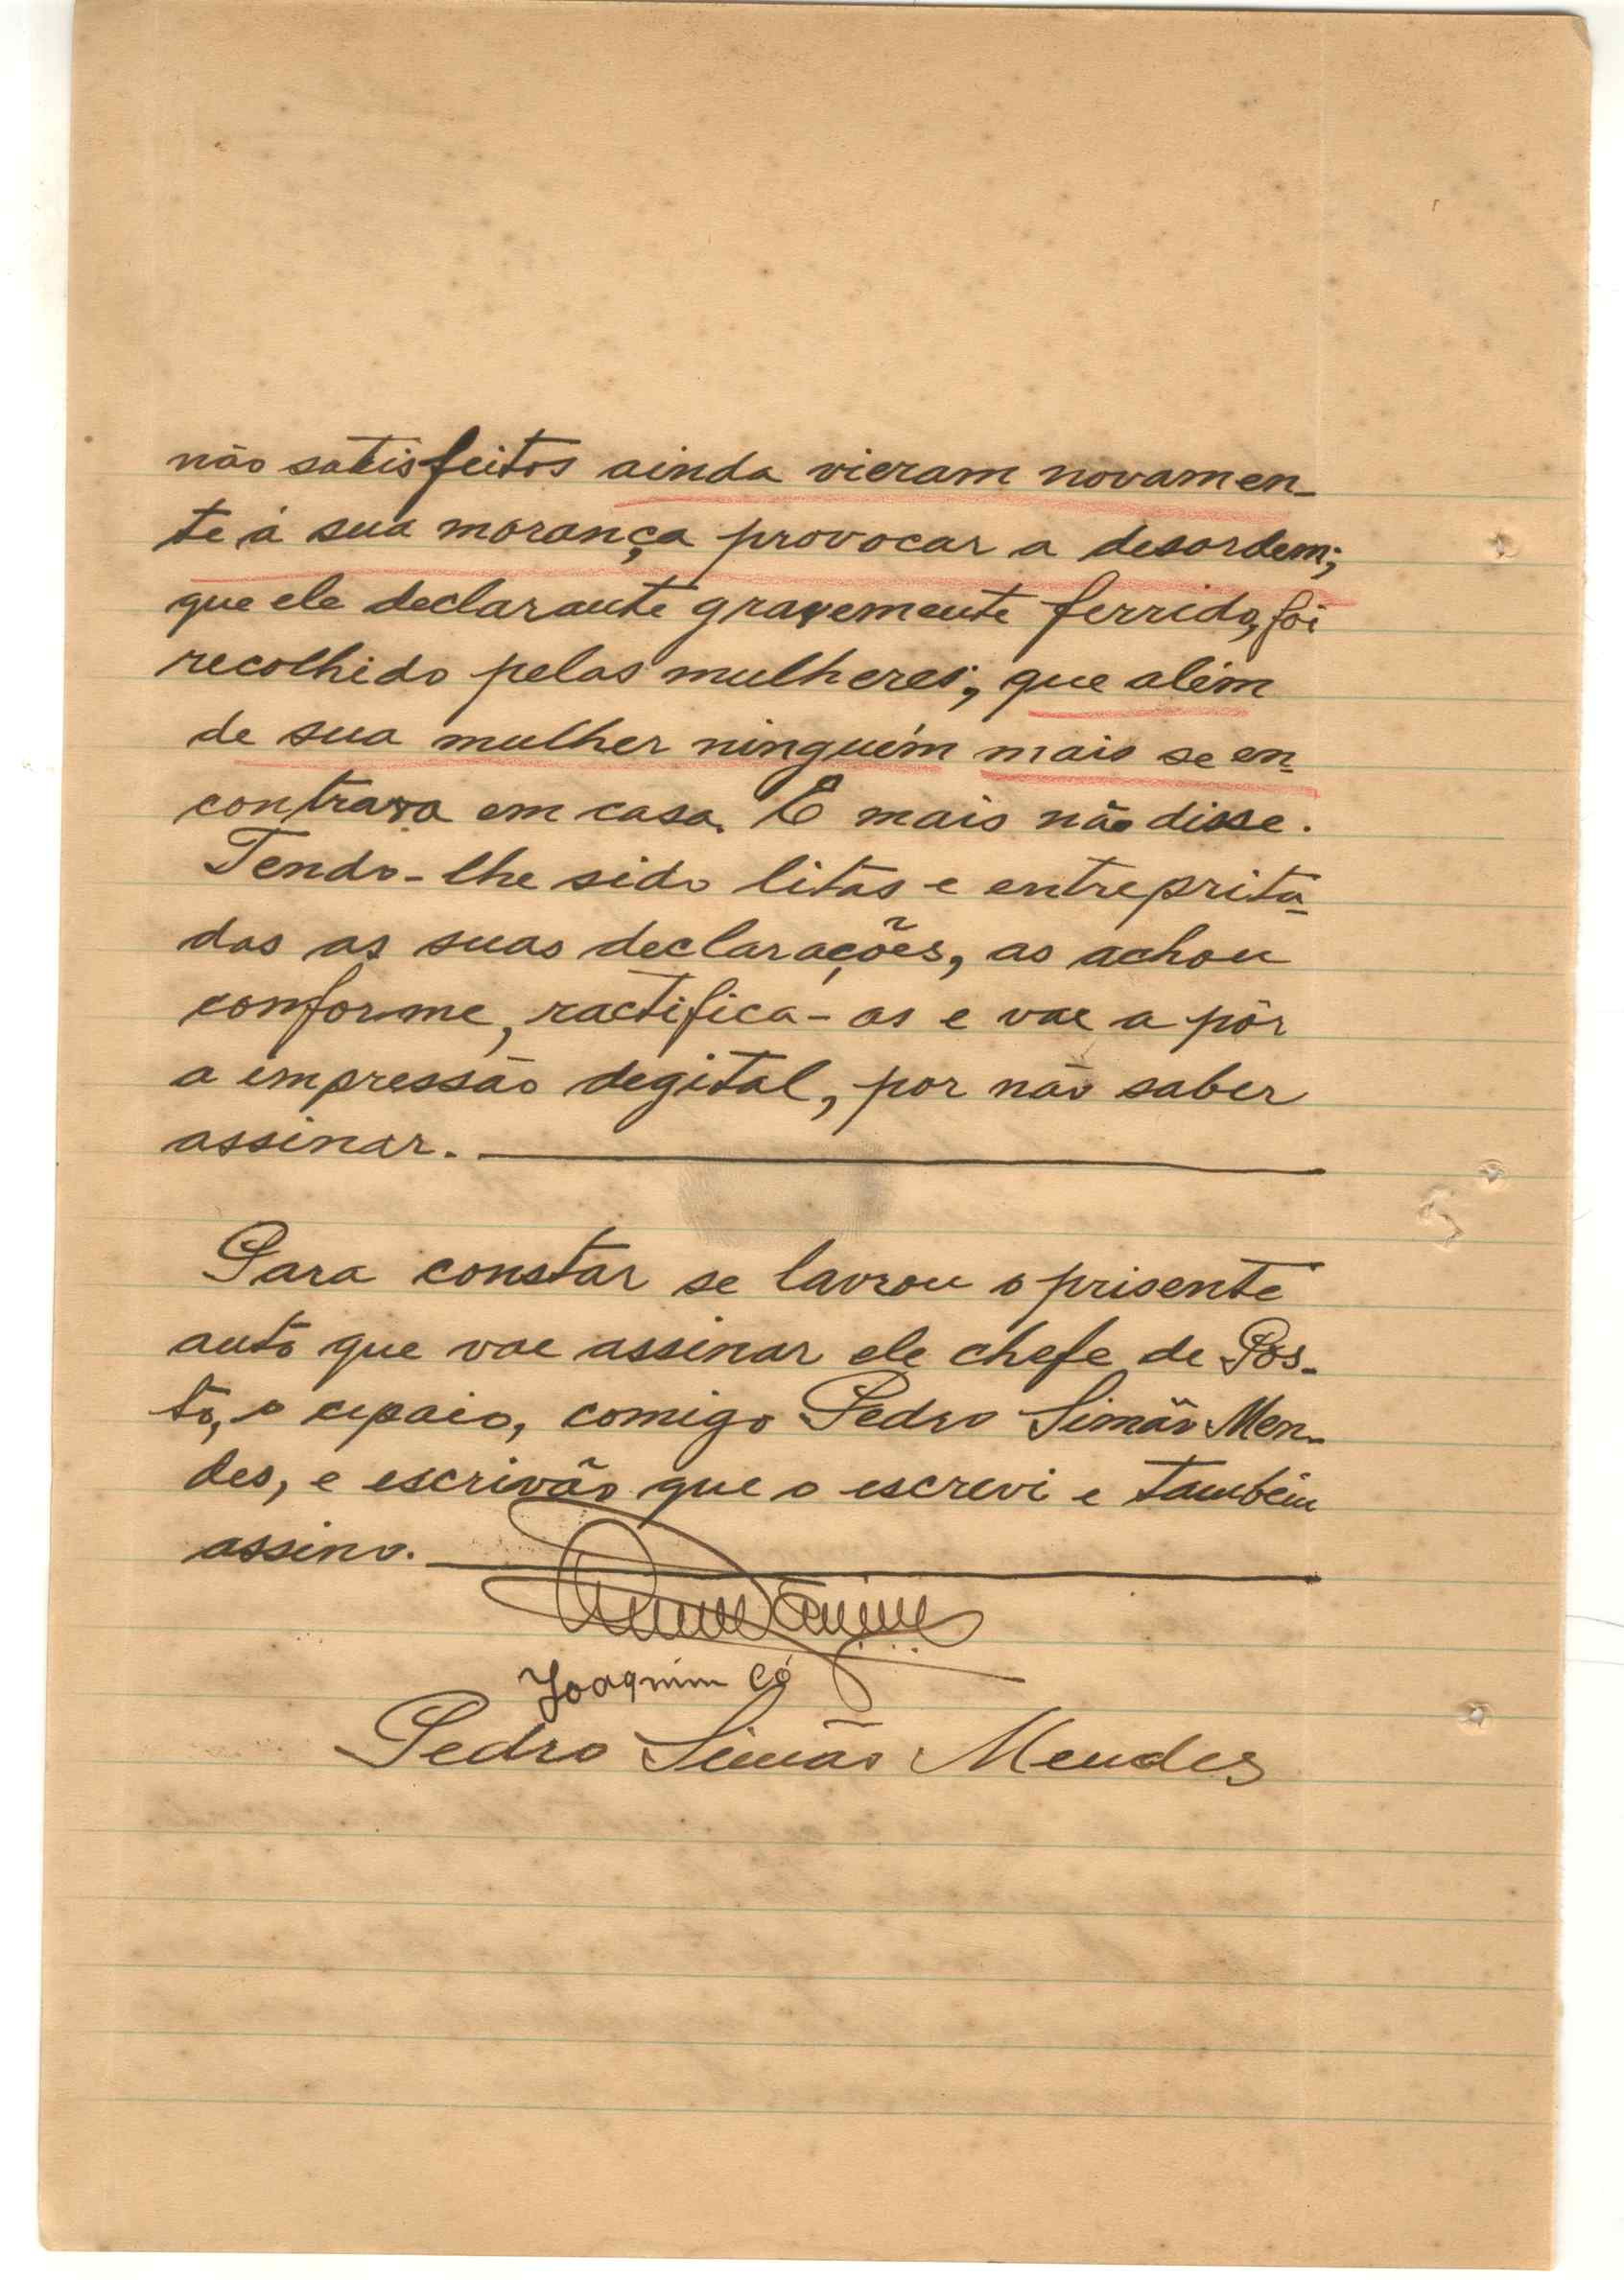 não satisfeitos ainda vieram novamen-
te á sua morança provocar a desordem;
que ele declarante gravemente ferrido, foi
recolhido pelas mulheres; que além
de sua mulher ninguém mais se en-
contrava em casa. E mais não disse.
Tendo-lhe sido litas e entreprita-
das as suas declarações, as achou
conforme, ractifica-as e vae a pôr
a impressão degital, por não saber
assinar.
Para constar se lavrou o prisente
auto que vae assinar ele chefe de Pos-
to, o cipaio, comigo Pedro Simão Men-
des, e escrivão que o escrevi e também
assino.
Joaquim Có
Pedro Simão Mendes